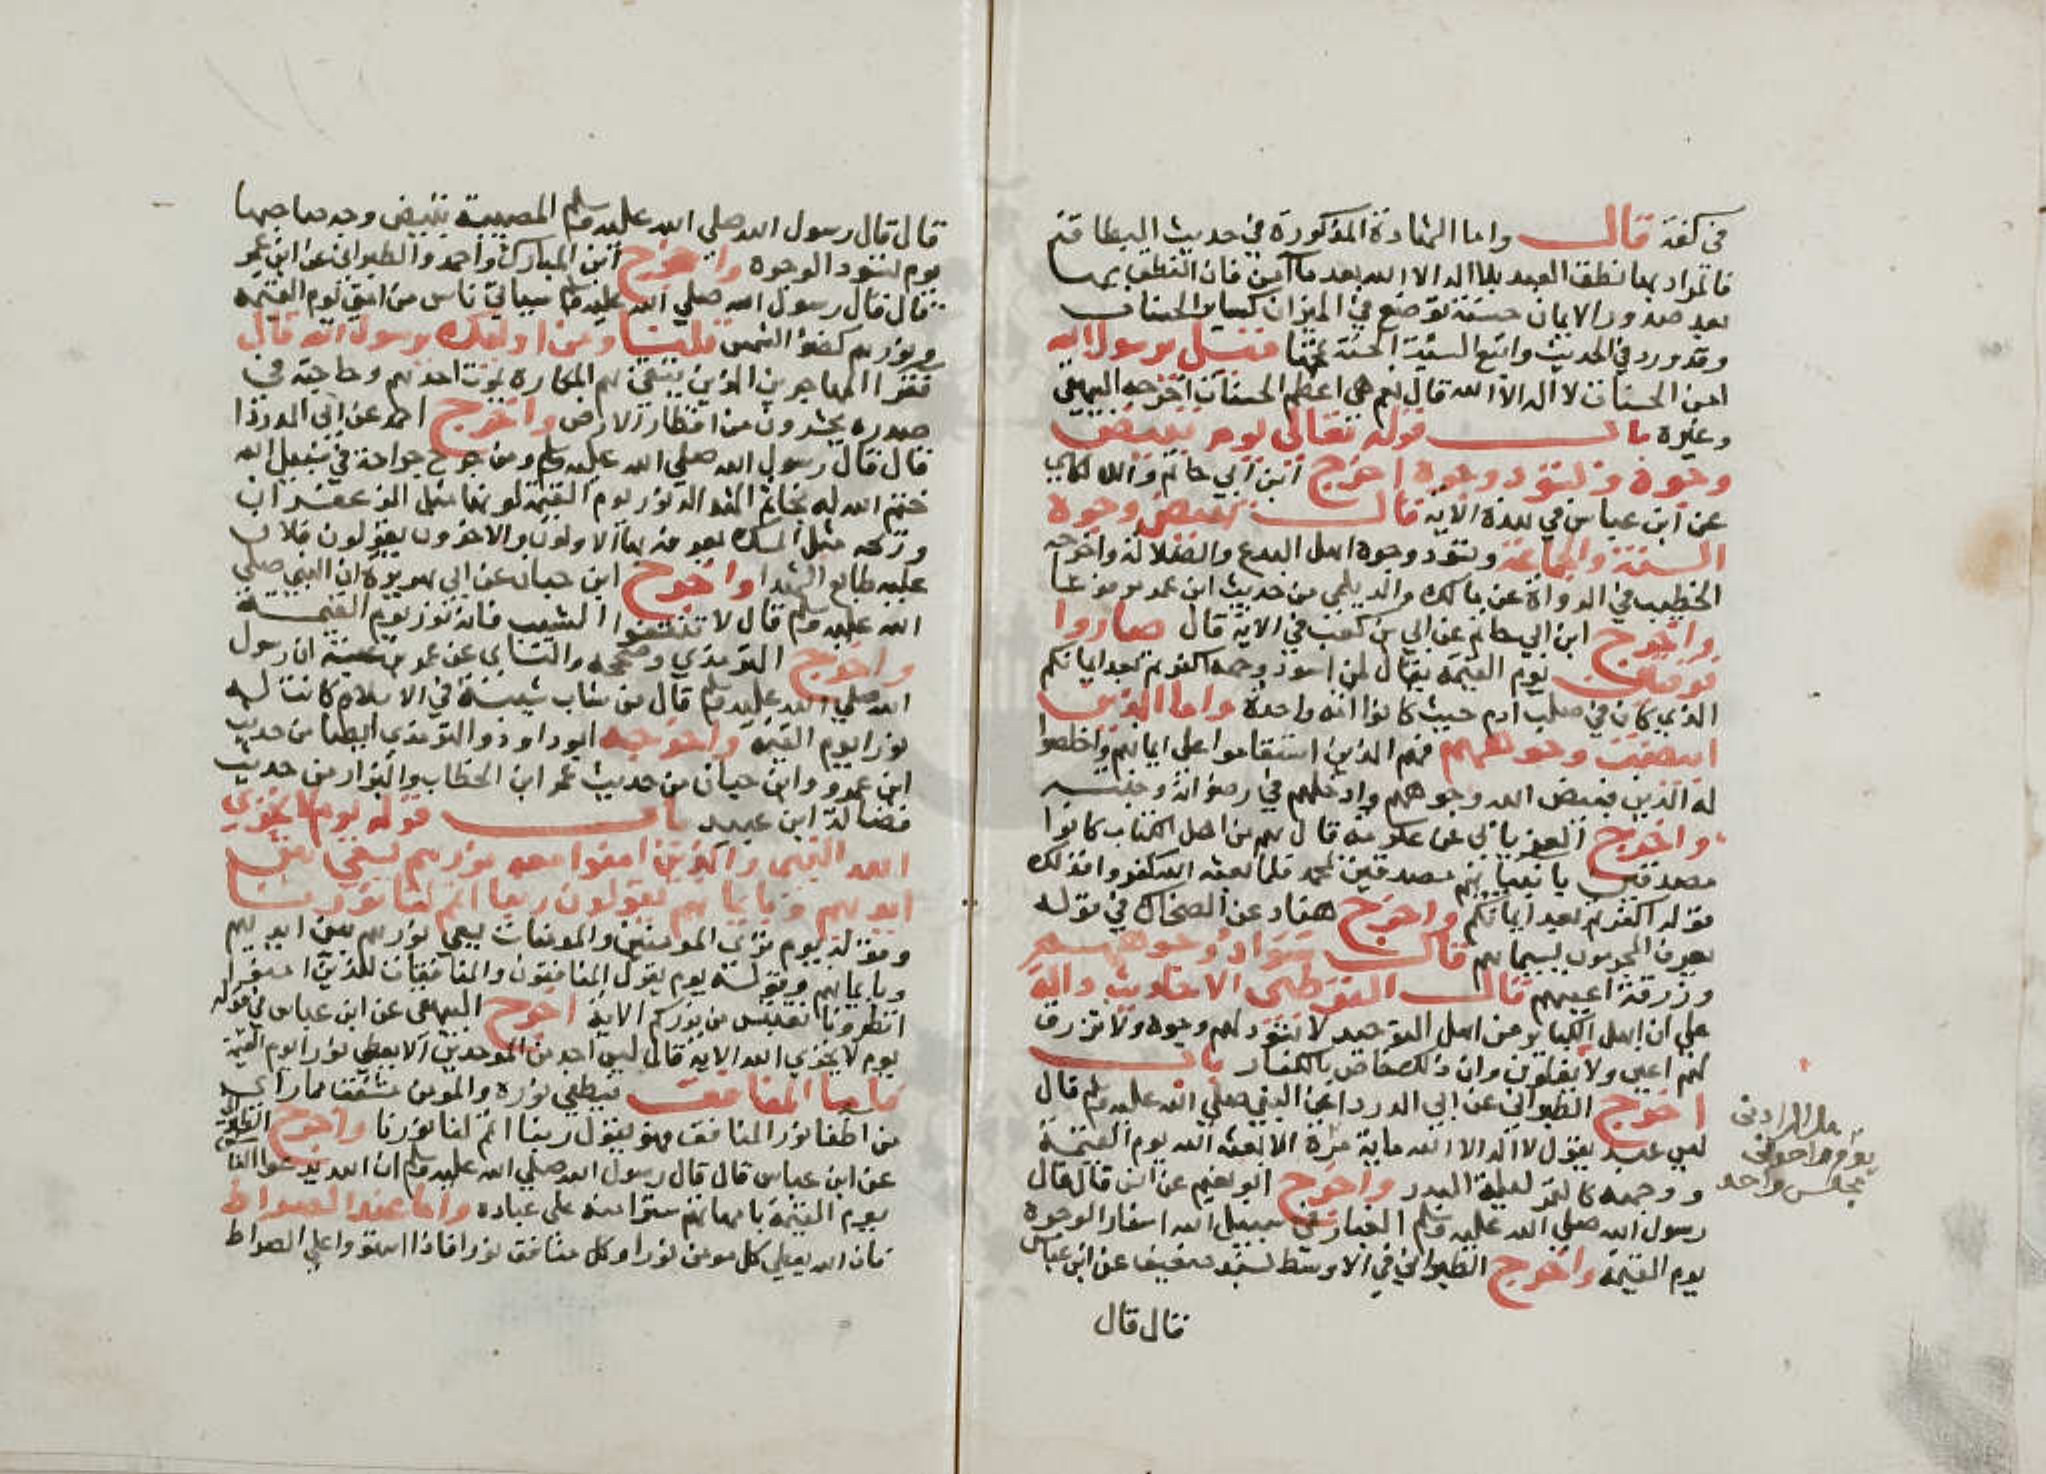 في كفة قال واما الشهادة المذكورة في حديث البطاقة
فالمراد بها نطق العبد بلا اله الا الله بعد ما آمن فان النطق بها
بعد صدور الايمان حسنة توضع في الميزان كساير الحسنات
وقد ورد في الحديث واتبع السيئة الحسنة تمحها فقيل يرسول الله
امن الحسنات لا اله الا الله قال نعم هي اعظم الحسنات اخرجه البيهقي
وغيره باب قوله تعالى يوم تبيض
وجوه وتسود وجوه اخرج ابن ابي حاتم واللالكاي
عن ابن عباس في هذه الاية قال تبيض وجوه
السنة والجماعة وتسود وجوه اهل البدع والضلالة واخرجه
الخطيب في الرواة عن مالك والديلمي من حديث ابن عمر مرفوعا
واخرج ابن ابي حاتم عن ابي بن كعب في الاية قال صاروا
فرقتين يوم القيمة يقال لمن اسود وجهه اكفرتم بعد ايمانكم
الذي كان في صلب ادم حيث كانوا امة واحدة واما الذين
ابيضت وجوههم فهم الذين استقاموا على ايمانهم واخلصوا
له الدين فبيض الله وجوههم وادخلهم في رضوانه وجنته
واخرج الفريابي عن عكرمة قال هم من اهل الكتاب كانوا
مصدقين بانبيايهم مصدقين لمحمد فلما بعثه الله كفروا فذلك
قوله اكفرتم بعد ايمانكم واخرج هناد عن الضحاك في قوله
يعرف المجرمون بسيماهم قال سواد وجوههم
وزرقة اعينهم قال القرطبي الاحاديث دالة
على ان اهل الكباير من اهل التوحيد لا تسود لهم وجوه ولا تزرق
لهم اعين ولا يغلون وان ذلك خاص بالكفار باب
اخرج الطبراني عن ابي الدردا عن النبي صلي الله عليه وسلم قال
ليس عبد يقول لا اله الا الله ماية مرة الا بعثه الله يوم القيمة
ووجهه كالقمر ليلة البدر واخرج ابو نعيم عن انس قال قال
رسول الله صلي الله عليه وسلم الغبار في سبيل الله اسفار الوجوه
يوم القيمة واخرج الطبراني في الاوسط بسند ضعيف عن ابن عباس
قال قال
مجلس واحد
قال قال رسول الله صلي الله عليه وسلم المصيبة تبيض وجه صاحبها
يوم تسود الوجوه واخرج ابن المبارك واحمد والطبراني عن ابن عمر
قال قال رسول الله صلي الله عليه وسلم سياتي ناس من امتي يوم القيمة
نورهم كضوء الشمس قلنا ومن اولئك يرسول الله قال
فقرا المهاجرين الذين يتقي بهم المكاره يموت احدهم وحاجته في
صدره يحشرون من اقطار الارض واخرج احمد عن ابي الدردا
قال قال رسول الله صلي الله عليه وسلم ومن جرح جراحة في سبيل الله
ختم الله له بخاتم الشهدا له نور يوم القيمة لونها مثل الزعفران
وريحه مثل المسك يعرفه بها الاولون والاخرون يقولون فلان
عليه طابع الشهدا واخرج ابن حبان عن ابي هريرة ان النبي صلي
الله عليه وسلم قال لا تنتفوا الشيب فانه نور يوم القيمة
واخرج الترمذي وصححه والنسائي عن عمرو بن عبسة ان رسول
الله صلي الله عليه وسلم قال من شاب شيبة في الاسلام كانت له
نورا يوم القيمة واخرجه ابو داود والترمذي ايضا من حديث
ابن عمرو وابن حبان من حديث عمر ابن الخطاب والبزار من حديث
فضالة ابن عبيد باب قوله يوم لا يخزي
الله النبي والذين امنوا معه نورهم يسعي بين
ايديهم وبايمانهم يقولون ربنا اتمم لنا نورنا
وقوله يوم ترى المومنين والمومنات يسعي نورهم بين ايديهم
وبايمانهم وقوله يوم يقول المنافقون والمنافقات للذين امنوا
انظرونا نقتبس من نوركم الاية اخرج البيهقي عن ابن عباس في قوله
يوم لا يخزي الله الاية قال ليس احد من الموحدين الا يعطي نورا يوم القيمة
فاما المنافق فيطفي نوره والمومن مشفقا مما راى
من اطفا نور المنافق فهو يقول ربنا اتمم لنا نورنا واخرج الطبراني
عن ابن عباس قال قال رسول الله صلي الله عليه وسلم ان الله يدعوا الناس
يوم القيمة بامهاتهم سترا منه على عباده واما عند الصراط
فان الله يعطي كل مومن نورا وكل منافق نورا فاذا استووا على الصراط